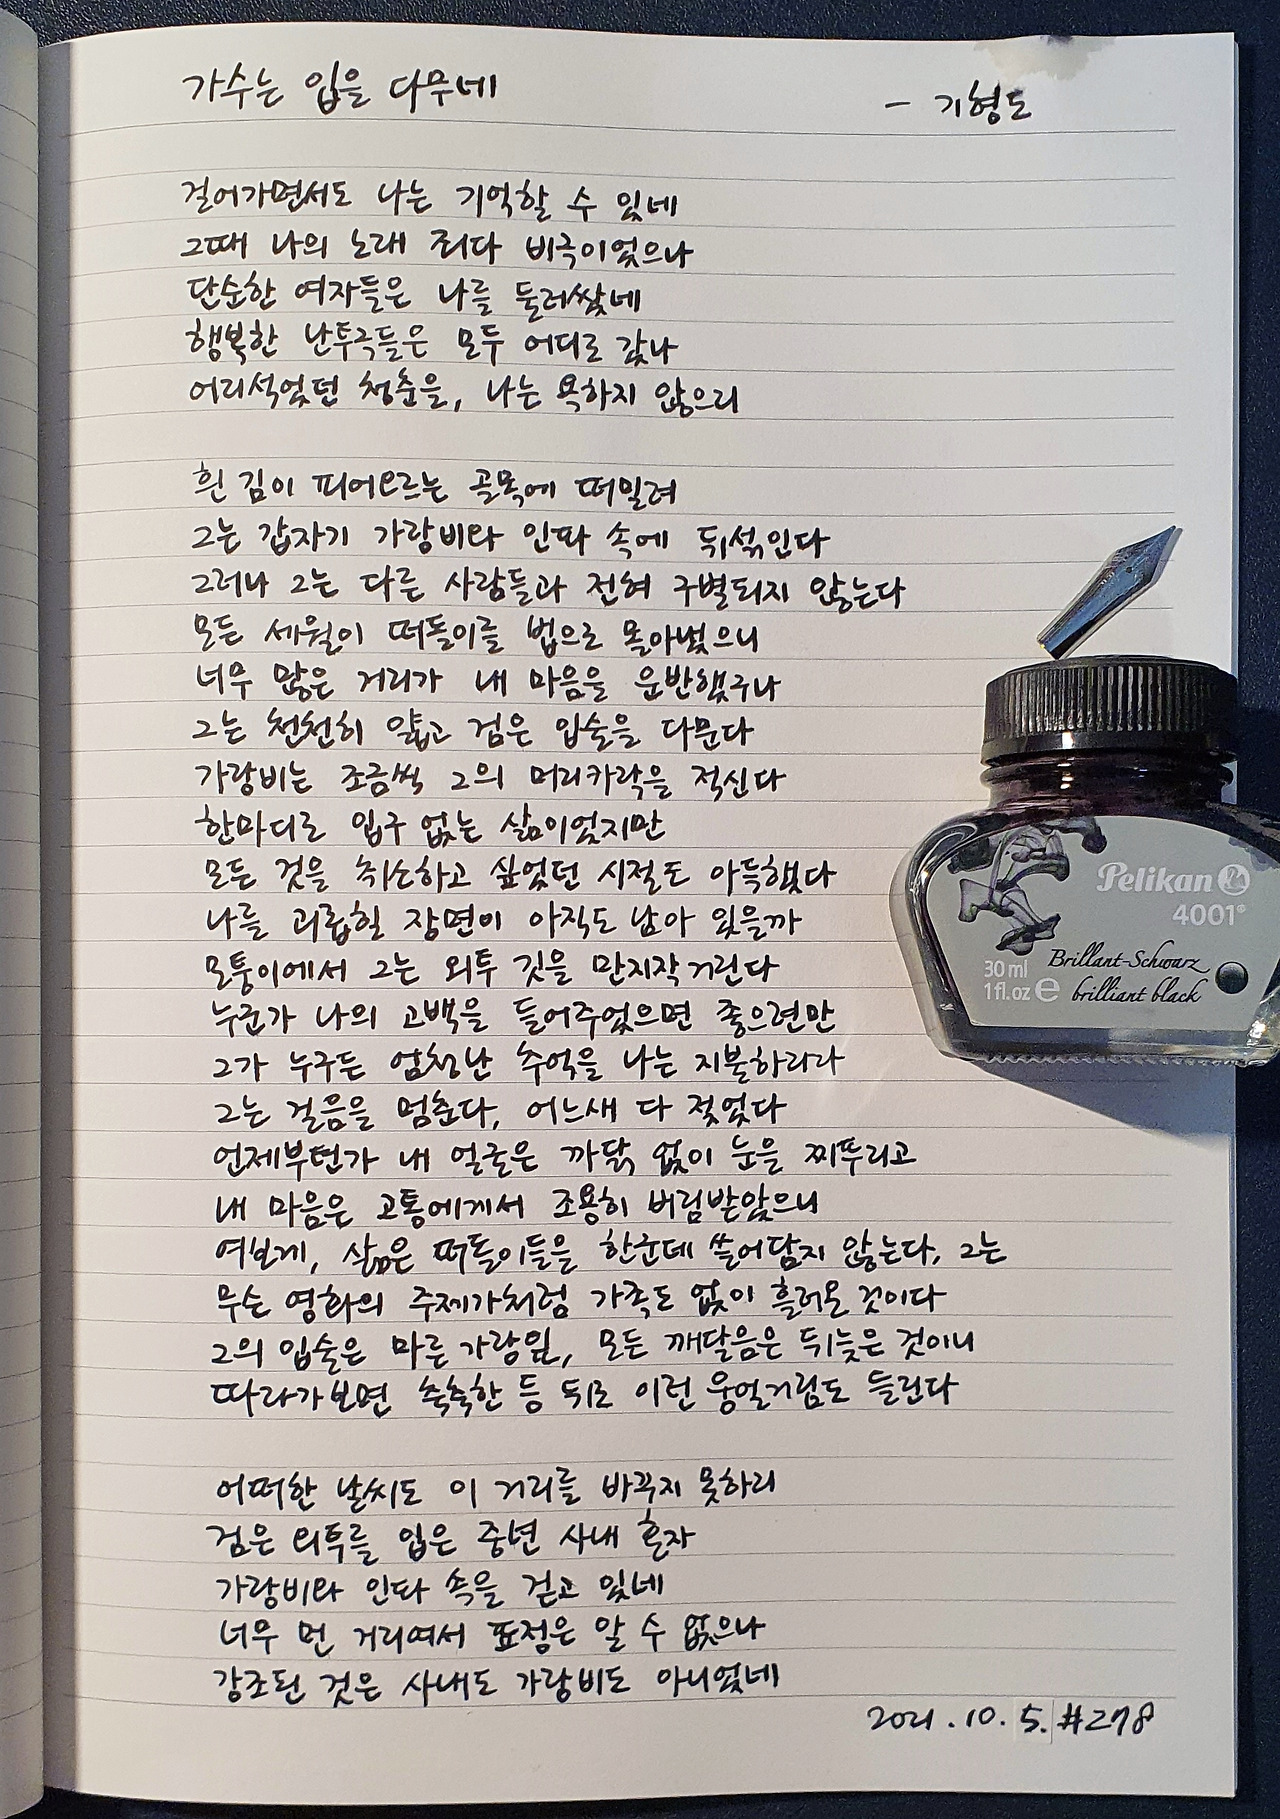 가수는 입을 다무네
- 기형도
걸어가면서도 나는 기억할 수 있네
그때 나의 노래 죄다 비극이었으나
단순한 여자들은 나를 둘러쌌네
행복한 난투극들은 모두 어디로 갔나
어리석었던 청춘을, 나는 욕하지 않으리
흰 김이 피어오르는 골목에 떠밀려
그는 갑자기 가랑비와 인파 속에 뒤섞인다
그러나 그는 다른 사람들과 전혀 구별되지 않는다
모든 세월이 떠돌이를 법으로 몰아냈으니
너무 많은 거리가 내 마음을 운반했구나
그는 천천히 얇고 검은 입술을 다문다
가랑비는 조금씩 그의 머리카락을 적신다
한마디로 입구 없는 삶이었지만
모든 것을 취소하고 싶었던 시절도 아득했다
나를 괴롭힐 장면이 아직도 남아 있을까
모퉁이에서 그는 외투 깃을 만지작거린다
누군가 나의 고백을 들어주었으면 좋으련만
그가 누구든 엄청난 추억을 나는 지불하리라
그는 걸음을 멈춘다, 어느새 다 젖었다
언제부턴가 내 얼굴은 까닭 없이 눈을 찌푸리고
내 마음은 고통에게서 조용히 버림받았으니
여보게, 삶은 떠돌이들을 한군데 쓸어담지 않는다, 그는
무슨 영화의 주제가처럼 가족도 없이 흘러온 것이다
그의 입술은 마른 가랑잎, 모든 깨달음은 뒤늦은 것이니
따라가보면 축축한 등 뒤로 이런 웅얼거림도 들린다
어떠한 날씨도 이 거리를 바꾸지 못하리
검은 외투를 입은 중년 사내 혼자
가랑비와 인파 속을 걷고 있네
너무 먼 거리여서 표정은 알 수 없으나
강조된 것은 사내도 가랑비도 아니었네
2021.10.5. #278
Pelikan
4001®
Brillant-Schwarz
30 ml
1 fl. oz e brilliant black